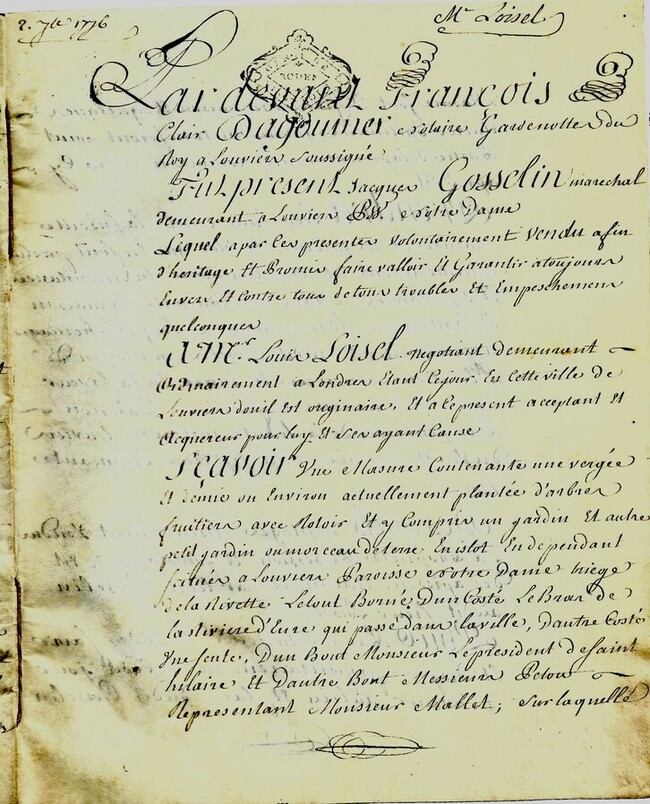 2. 7bre 1776
Mr Loisel
Par devant François
Clair Dagoumer Notaire Gardenotte du
Roy a Louviers soussigné
Fut present Jacques Gosselin marechal
demeurant a Louviers Psse. Notre Dame
Lequel a par ces presentes volontairement vendu afin
d'heritage Et Promis faire valloir Et Garantir a toujours
Envers Et contre tous de tous troubles Et Empeschemens
quelconques
A Mr. Louis Loisel negotiant demeurant
ordinairement a Londres Etant Cejour En cette ville de
Louviers dou il est originaire, Et a ce present acceptant Et
acquereur pour luy Et ses ayant Cause
Sçavoir Une Masure Contenante une vergée
Et demie ou Environ actuellement plantée d'arbres
fruitiers avec Rotoir Et y Compris un jardin Et autre
petit jardin ou morceau de terre En islot En dependant
scitués a Louviers Paroisse Notre Dame triege
de la Rivette Le tout Borné, D'un Costé Le Bras de
la Riviere d'Eure qui passe dans la ville, D'autre Costé
Une sente, D'un Bout Monsieur Le president de Saint
hilaire Et D'autre Bout Messieurs Petou
Representant Monsieur Mallet; sur laquelle